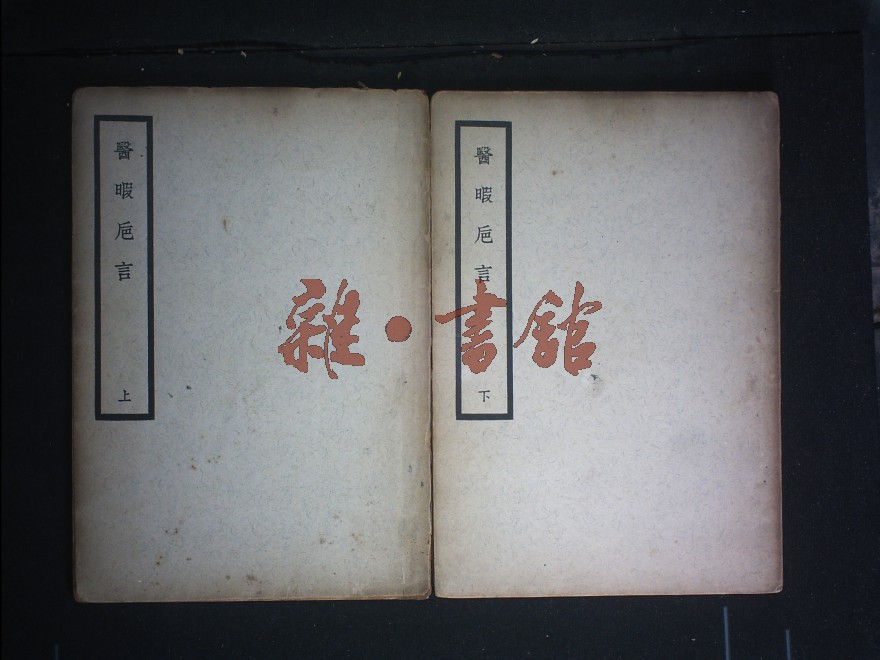 醫暇巵言
上
醫暇巵言
下
雜·書館